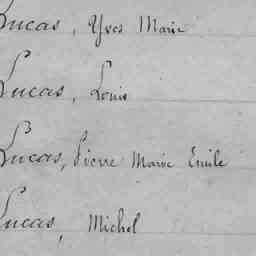 Lucas, Yves Marie
Lucas, Louis
Lucas, Pierre Marie Emile
Lucas, Michel